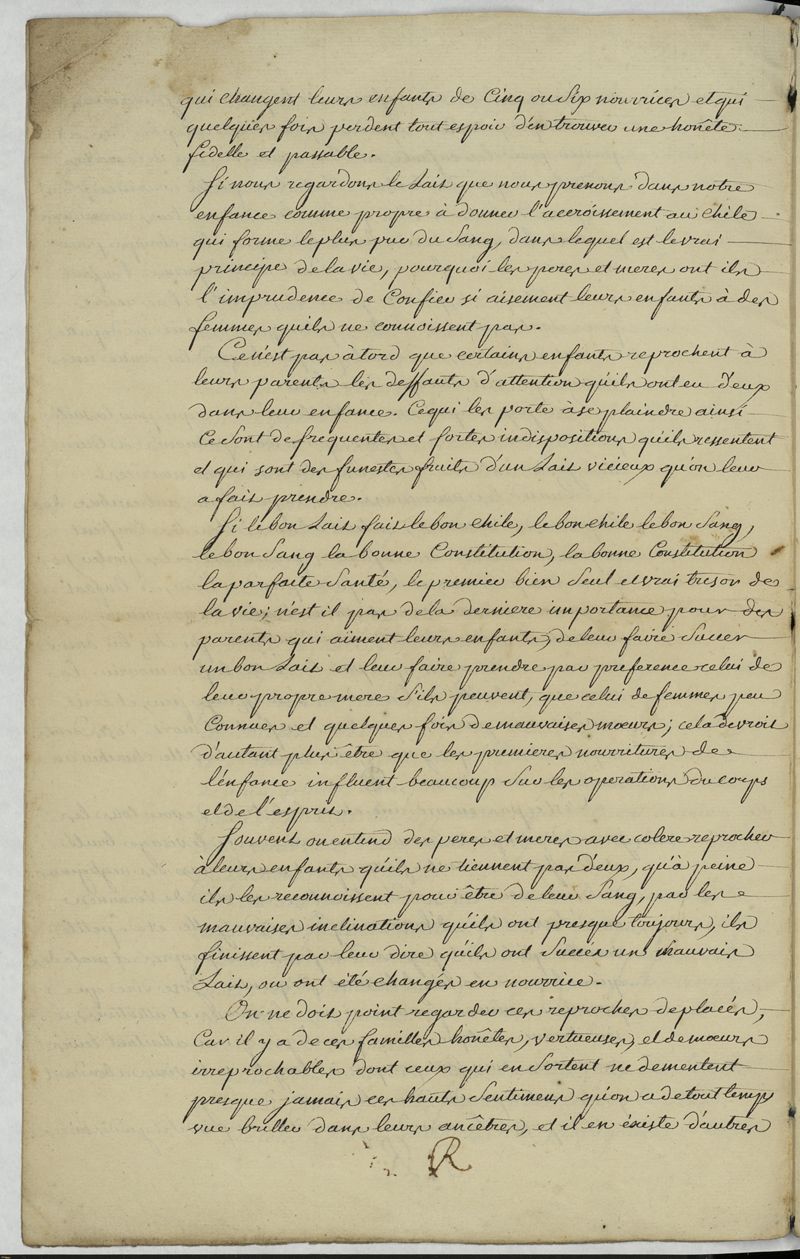 qui changent leurs enfants de Cinq ou Six nourrices et qui
quelques fois perdent tout espoir d'en trouver une honête
fidelle et passable.
Si nous regardons le Lait que nous prenons dans notre
enfance comme propre à donner l'accroissement au chile
qui forme le plus pur du Sang, dans lequel est le vrai
principe de la vie, pourquoi les peres et meres ont ils
l'imprudence de Confier si aisement leurs enfants à des
femmes qu'ils ne connoissent pas.
Ce n'est pas à tord que certains enfants reprochent à
leurs parents les deffauts d'attention qu'ils ont eu d'eux
dans leur enfance. Ce qui les porte à se plaindre ainsi
Ce Sont de frequentes et fortes indispositions qu'ils ressentent
et qui sont des funestes fruits d'un Lait vicieux qu'on leur
a fait prendre.
Si le bon Lait fait le bon chile, le bon chile le bon Sang,
le bon Sang la bonne Constitution, la bonne Constitution
la parfaite Santé, le premier bien Seul et vrai tresor de
la vie; n'est il pas de la derniere importance pour des
parents qui aiment leurs enfants, de leur faire Succer
un bon Lait et leur faire prendre par preference celui de
leur propre mere S'ils peuvent, que celui de femmes peu
Connues et quelques fois de mauvaises mœurs; cela devroit
d'autant plus être que les premieres nourritures de
l'enfance influent beaucoup Sur les operations du corps
et de l'esprit.
Souvent on entend des peres et meres avec colere reprocher
à leurs enfants qu'ils ne tiennent pas d'eux, qu'à peine
ils les reconnoissent pour être de leur Sang, par les
mauvaises inclinations qu'ils ont presque toujours, ils
finissent par leur dire qu'ils ont Succés un mauvais
Lait, ou ont été changés en nourrice.
On ne doit point regarder ces reproches deplacés,
Car il y a de ces familles honêtes, vertueuses, et de mœurs
irreprochables dont ceux qui en Sortent ne dementent
presque jamais ces hauts Sentimens qu'on a de tout temps
vue briller dans leurs ancêtres, et il en éxiste d'autres
R